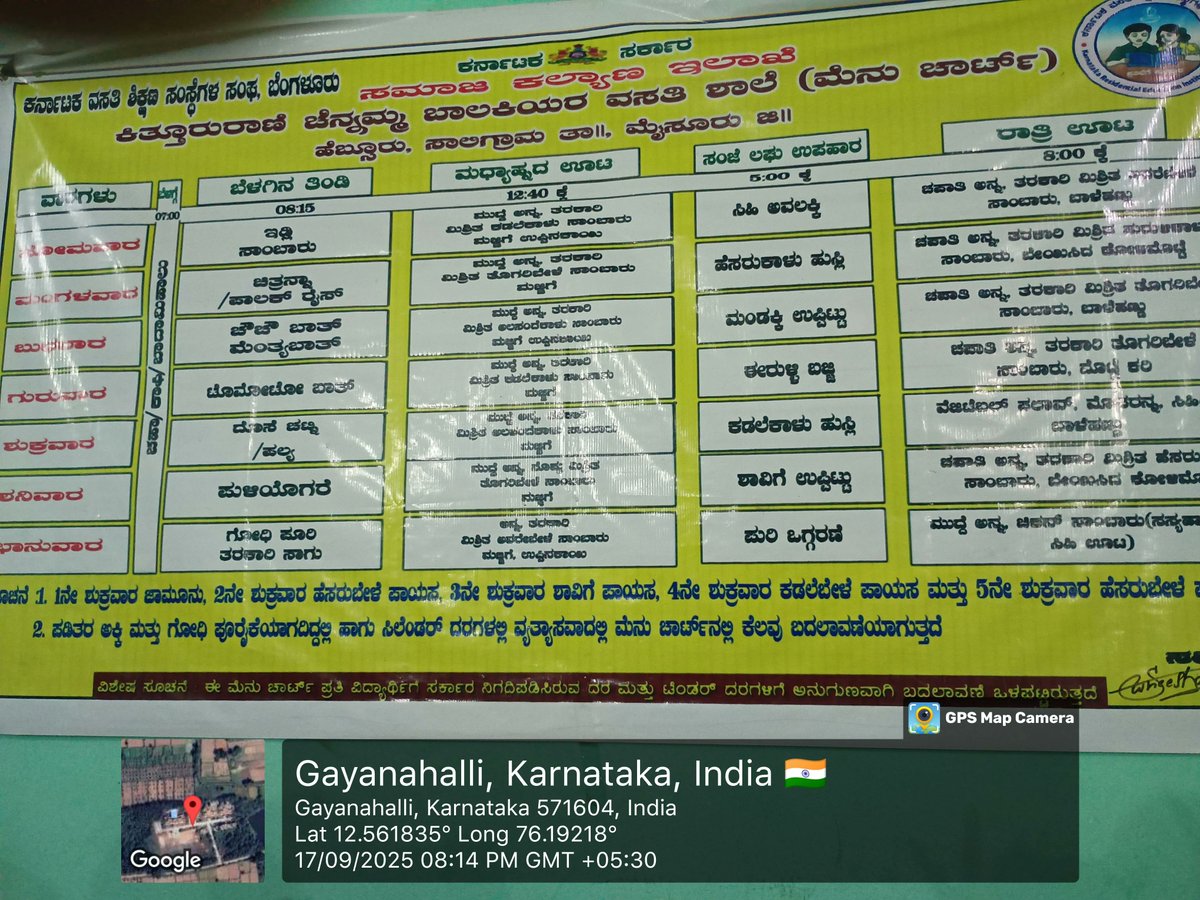 ಕರ್ನಾಟಕ ಸರ್ಕಾರ
ಕರ್ನಾಟಕ ವಸತಿ ಶಿಕ್ಷಣ ಸಂಸ್ಥೆಗಳ ಸಂಘ, ಬೆಂಗಳೂರು
ಸಮಾಜ ಕಲ್ಯಾಣ ಇಲಾಖೆ
ಕಿತ್ತೂರುರಾಣಿ ಚೆನ್ನಮ್ಮ ಬಾಲಕಿಯರ ವಸತಿ ಶಾಲೆ (ಮೆನು ಚಾರ್ಟ್)
ಹೆಬ್ಸೂರು, ಸಾಲಿಗ್ರಾಮ ತಾ॥, ಮೈಸೂರು ಜಿ॥
ವಾರಗಳು
07:00
ಬೆಳಗಿನ ತಿಂಡಿ
08:15
ಮಧ್ಯಾಹ್ನದ ಊಟ
12:40 ಕ್ಕೆ
ಸಂಜೆ ಲಘು ಉಪಹಾರ
5:00 ಕ್ಕೆ
ರಾತ್ರಿ ಊಟ
8:00 ಕ್ಕೆ
ಸೋಮವಾರ
ಇಡ್ಲಿ
ಸಾಂಬಾರು
ಮುದ್ದೆ ಅನ್ನ, ತರಕಾರಿ
ಮಿಶ್ರಿತ ಕಡಲೆಕಾಳು ಸಾಂಬಾರು
ಮಜ್ಜಗೆ ಉಪ್ಪಿನಕಾಯಿ
ಸಿಹಿ ಅವಲಕ್ಕಿ
ಚಪಾತಿ ಅನ್ನ, ತರಕಾರಿ ಮಿಶ್ರಿತ
ಸಾಂಬಾರು, ಬಾಳೆಹಣ್ಣು
ಮಂಗಳವಾರ
ಚಿತ್ರನ್ನಾ
/ಪಾಲಕ್ ರೈಸ್
ಮುದ್ದೆ ಅನ್ನ, ತರಕಾರಿ
ಮಿಶ್ರಿತ ತೊಗರಿಬೇಳೆ ಸಾಂಬಾರು
ಮಜ್ಜಗೆ
ಹೆಸರುಕಾಳು ಹುಸ್ಲಿ
ಚಪಾತಿ ಅನ್ನ, ತರಕಾರಿ ಮಿಶ್ರಿತ
ಸಾಂಬಾರು, ಬೇಯಿಸಿದ ಕೋಳಿಮೊಟ್ಟೆ
ಬುಧವಾರ
ಚೌಚೌ ಬಾತ್
ಮೆಂತ್ಯಬಾತ್
ಮುದ್ದೆ ಅನ್ನ, ತರಕಾರಿ
ಮಿಶ್ರಿತ ಅಲಸಂದೆಕಾಳು ಸಾಂಬಾರು
ಮಜ್ಜಗೆ ಉಪ್ಪಿನಕಾಯಿ
ಮಂಡಕ್ಕಿ ಉಪ್ಪಿಟ್ಟು
ಚಪಾತಿ ಅನ್ನ, ತರಕಾರಿ ಮಿಶ್ರಿತ
ಸಾಂಬಾರು, ಬಾಳೆಹಣ್ಣು
ಗುರುವಾರ
ಟೊಮೋಟೋ ಬಾತ್
ಮುದ್ದೆ ಅನ್ನ, ತರಕಾರಿ
ಮಿಶ್ರಿತ ಕಡಲೆಕಾಳು ಸಾಂಬಾರು
ಮಜ್ಜಗೆ
ಈರುಳ್ಳಿ ಬಜ್ಜಿ
ಚಪಾತಿ ಅನ್ನ, ತರಕಾರಿ ತೊಗರಿಬೇಳೆ
ಸಾಂಬಾರು,
ಶುಕ್ರವಾರ
ದೋಸೆ ಚಟ್ನಿ
/ಪಲ್ಯ
ಮುದ್ದೆ ಅನ್ನ, ತರಕಾರಿ
ಮಿಶ್ರಿತ ಅಲಸಂದೆಕಾಳು ಸಾಂಬಾರು
ಮಜ್ಜಗೆ
ಕಡಲೆಕಾಳು ಹುಸ್ಲಿ
ವೆಜಿಟೆಬಲ್ ಪಲಾವ್, ಮೊಸರನ್ನ, ಸಿಹಿ
ಬಾಳೆಹಣ್ಣು
ಶನಿವಾರ
ಪುಳಿಯೋಗರೆ
ಮುದ್ದೆ ಅನ್ನ, ಸೊಪ್ಪು ಮಿಶ್ರಿತ
ತೊಗರಿಬೇಳೆ ಸಾಂಬಾರು
ಮಜ್ಜಗೆ
ಶಾವಿಗೆ ಉಪ್ಪಿಟ್ಟು
ಚಪಾತಿ ಅನ್ನ, ತರಕಾರಿ ಮಿಶ್ರಿತ
ಸಾಂಬಾರು, ಬೇಯಿಸಿದ
ಭಾನುವಾರ
ಗೋಧಿ ಪೂರಿ
ತರಕಾರಿ ಸಾಗು
ಅನ್ನ, ತರಕಾರಿ
ಮಿಶ್ರಿತ ಅವರೇಬೇಳೆ ಸಾಂಬಾರು
ಮಜ್ಜಗೆ, ಉಪ್ಪಿನಕಾಯಿ
ಪುರಿ ಒಗ್ಗರಣೆ
ಮುದ್ದೆ ಅನ್ನ, ಚಿಕನ್ ಸಾಂಬಾರು
ಸಿಹಿ ಊಟ)
1. 1ನೇ ಶುಕ್ರವಾರ ಜಾಮೂನು, 2ನೇ ಶುಕ್ರವಾರ ಹೆಸರುಬೇಳೆ ಪಾಯಸ, 3ನೇ ಶುಕ್ರವಾರ ಶಾವಿಗೆ ಪಾಯಸ, 4ನೇ ಶುಕ್ರವಾರ ಕಡಲೆಬೇಳೆ ಪಾಯಸ ಮತ್ತು 5ನೇ ಶುಕ್ರವಾರ ಹೆಸರುಬೇಳೆ
2. ಪಡಿತರ ಅಕ್ಕಿ ಮತ್ತು ಗೋಧಿ ಪೂರೈಕೆಯಾಗದಿದ್ದಲ್ಲಿ ಹಾಗು ಸಿಲೆಂಡರ್ ದರಗಳಲ್ಲಿ ವ್ಯತ್ಯಾಸವಾದಲ್ಲಿ ಮೆನು ಚಾರ್ಟ್‌ನಲ್ಲಿ ಕೆಲವು ಬದಲಾವಣೆಯಾಗುತ್ತದೆ
ವಿಶೇಷ ಸೂಚನೆ : ಈ ಮೆನು ಚಾರ್ಟ್ ಪ್ರತಿ ವಿದ್ಯಾರ್ಥಿಗೆ ಸರ್ಕಾರ ನಿಗದಿಪಡಿಸಿರುವ ದರ ಮತ್ತು ಟೆಂಡರ್ ದರಗಳಿಗೆ ಅನುಗುಣವಾಗಿ ಬದಲಾವಣೆ ಒಳಪಟ್ಟಿರುತ್ತದೆ
GPS Map Camera
Gayanahalli, Karnataka, India
Gayanahalli, Karnataka 571604, India
Lat 12.561835° Long 76.19218°
17/09/2025 08:14 PM GMT +05:30
Google